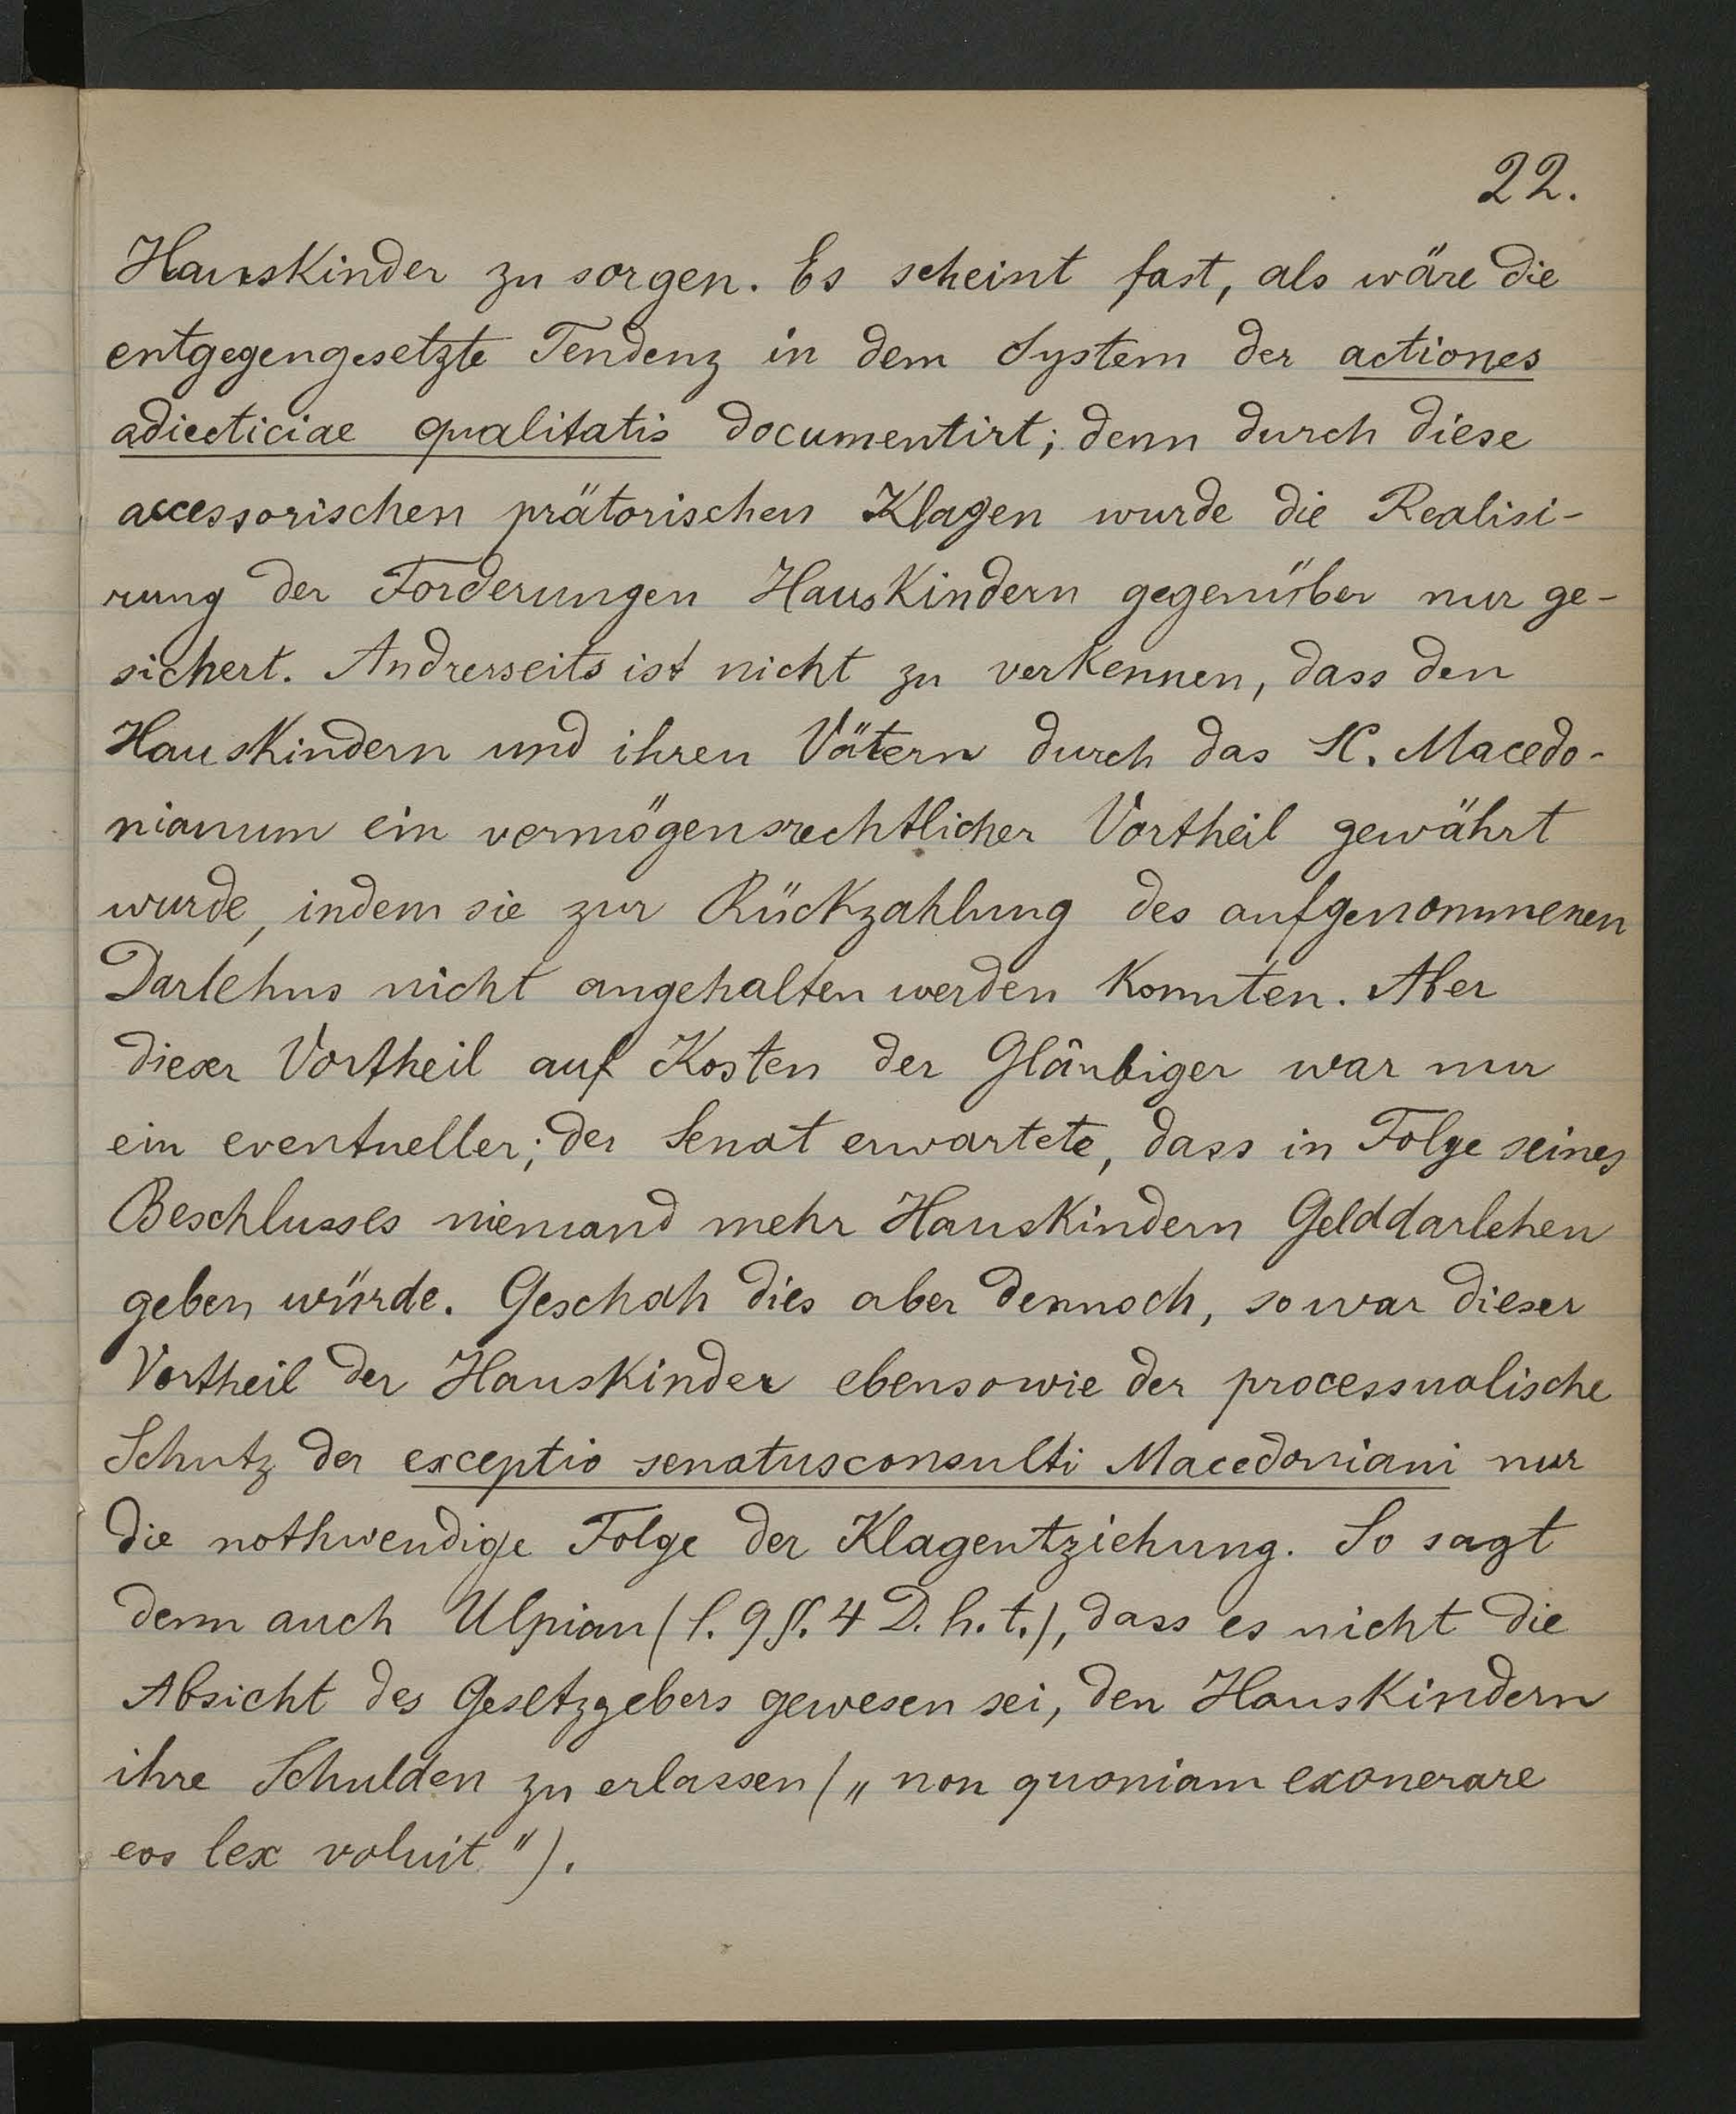 22.
Hauskinder zu sorgen. Es scheint fast, als wäre die
entgegengesetzte Tendenz in dem System der actiones
adiecticiae qualitatis documentirt; denn durch diese
accessorischen prätorischen Klagen wurde die Realisi-
rung der Forderungen Hauskindern gegenüber nur ge-
sichert. Andrerseits ist nicht zu verkennen, dass den
Hauskindern und ihren Vätern durch das SC. Macedo-
nianum ein vermögensrechtlicher Vortheil gewährt
wurde, indem sie zur Rückzahlung des aufgenommenen
Darlehns nicht angehalten werden konnten. Aber
dieser Vortheil auf Kosten der Gläubiger war nur
ein eventueller; der Senat erwartete, dass in Folge seines
Beschlusses niemand mehr Hauskindern Gelddarlehen
geben würde. Geschah dies aber dennoch, so war dieser
Vortheil der Hauskinder ebensowie der processualische
Schutz der exceptio senatusconsulti Macedoniani nur
die nothwendige Folge der Klagentziehung. So sagt
denn auch Ulpian (l. 9 §. 4 D. h. t.), dass es nicht die
Absicht des Gesetzgebers gewesen sei, den Hauskindern
ihre Schulden zu erlassen („non quoniam exonerare
eos lex voluit").